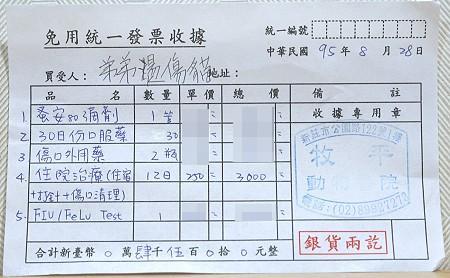 免用統一發票收據
統一編號
中華民國 95 年 8 月 28 日
買受人： 弟弟燙傷貓 地址：
品 名 數量 單價 總價 備註
1 蚤安80滴劑 1 管
2 30日份口服藥 30
3 傷口外用藥 2 瓶
4 住院治療(住宿 12日 250 3000
+打針+傷口清理)
5 FIV/FeLv Test 1
合計新臺幣 0 萬 肆 千 伍 百 0 拾 0 元整
收據專用章
新莊市公園路122號1樓
牧平
動物醫院
電話:(02)89927273
銀貨兩訖